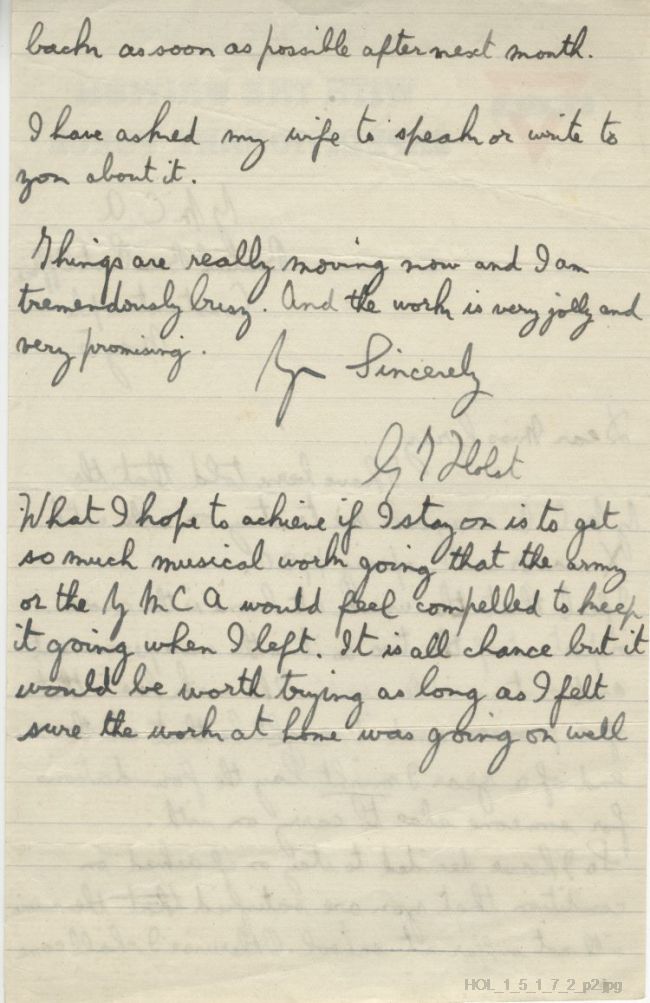 back as soon as possible after next month.
I have asked my wife to speak or write to
you about it.
Things are really moving now and I am
tremendously busy. And the work is very jolly and
very promising.
Yrs Sincerely
G T Holst
What I hope to achieve if I stay on is to get
so much musical work going that the army
or the Y M C A would feel compelled to keep
it going when I left. It is all chance but it
would be worth trying as long as I felt
sure the work at home was going on well
HOL_1_5_1_7_2_p2.jpg